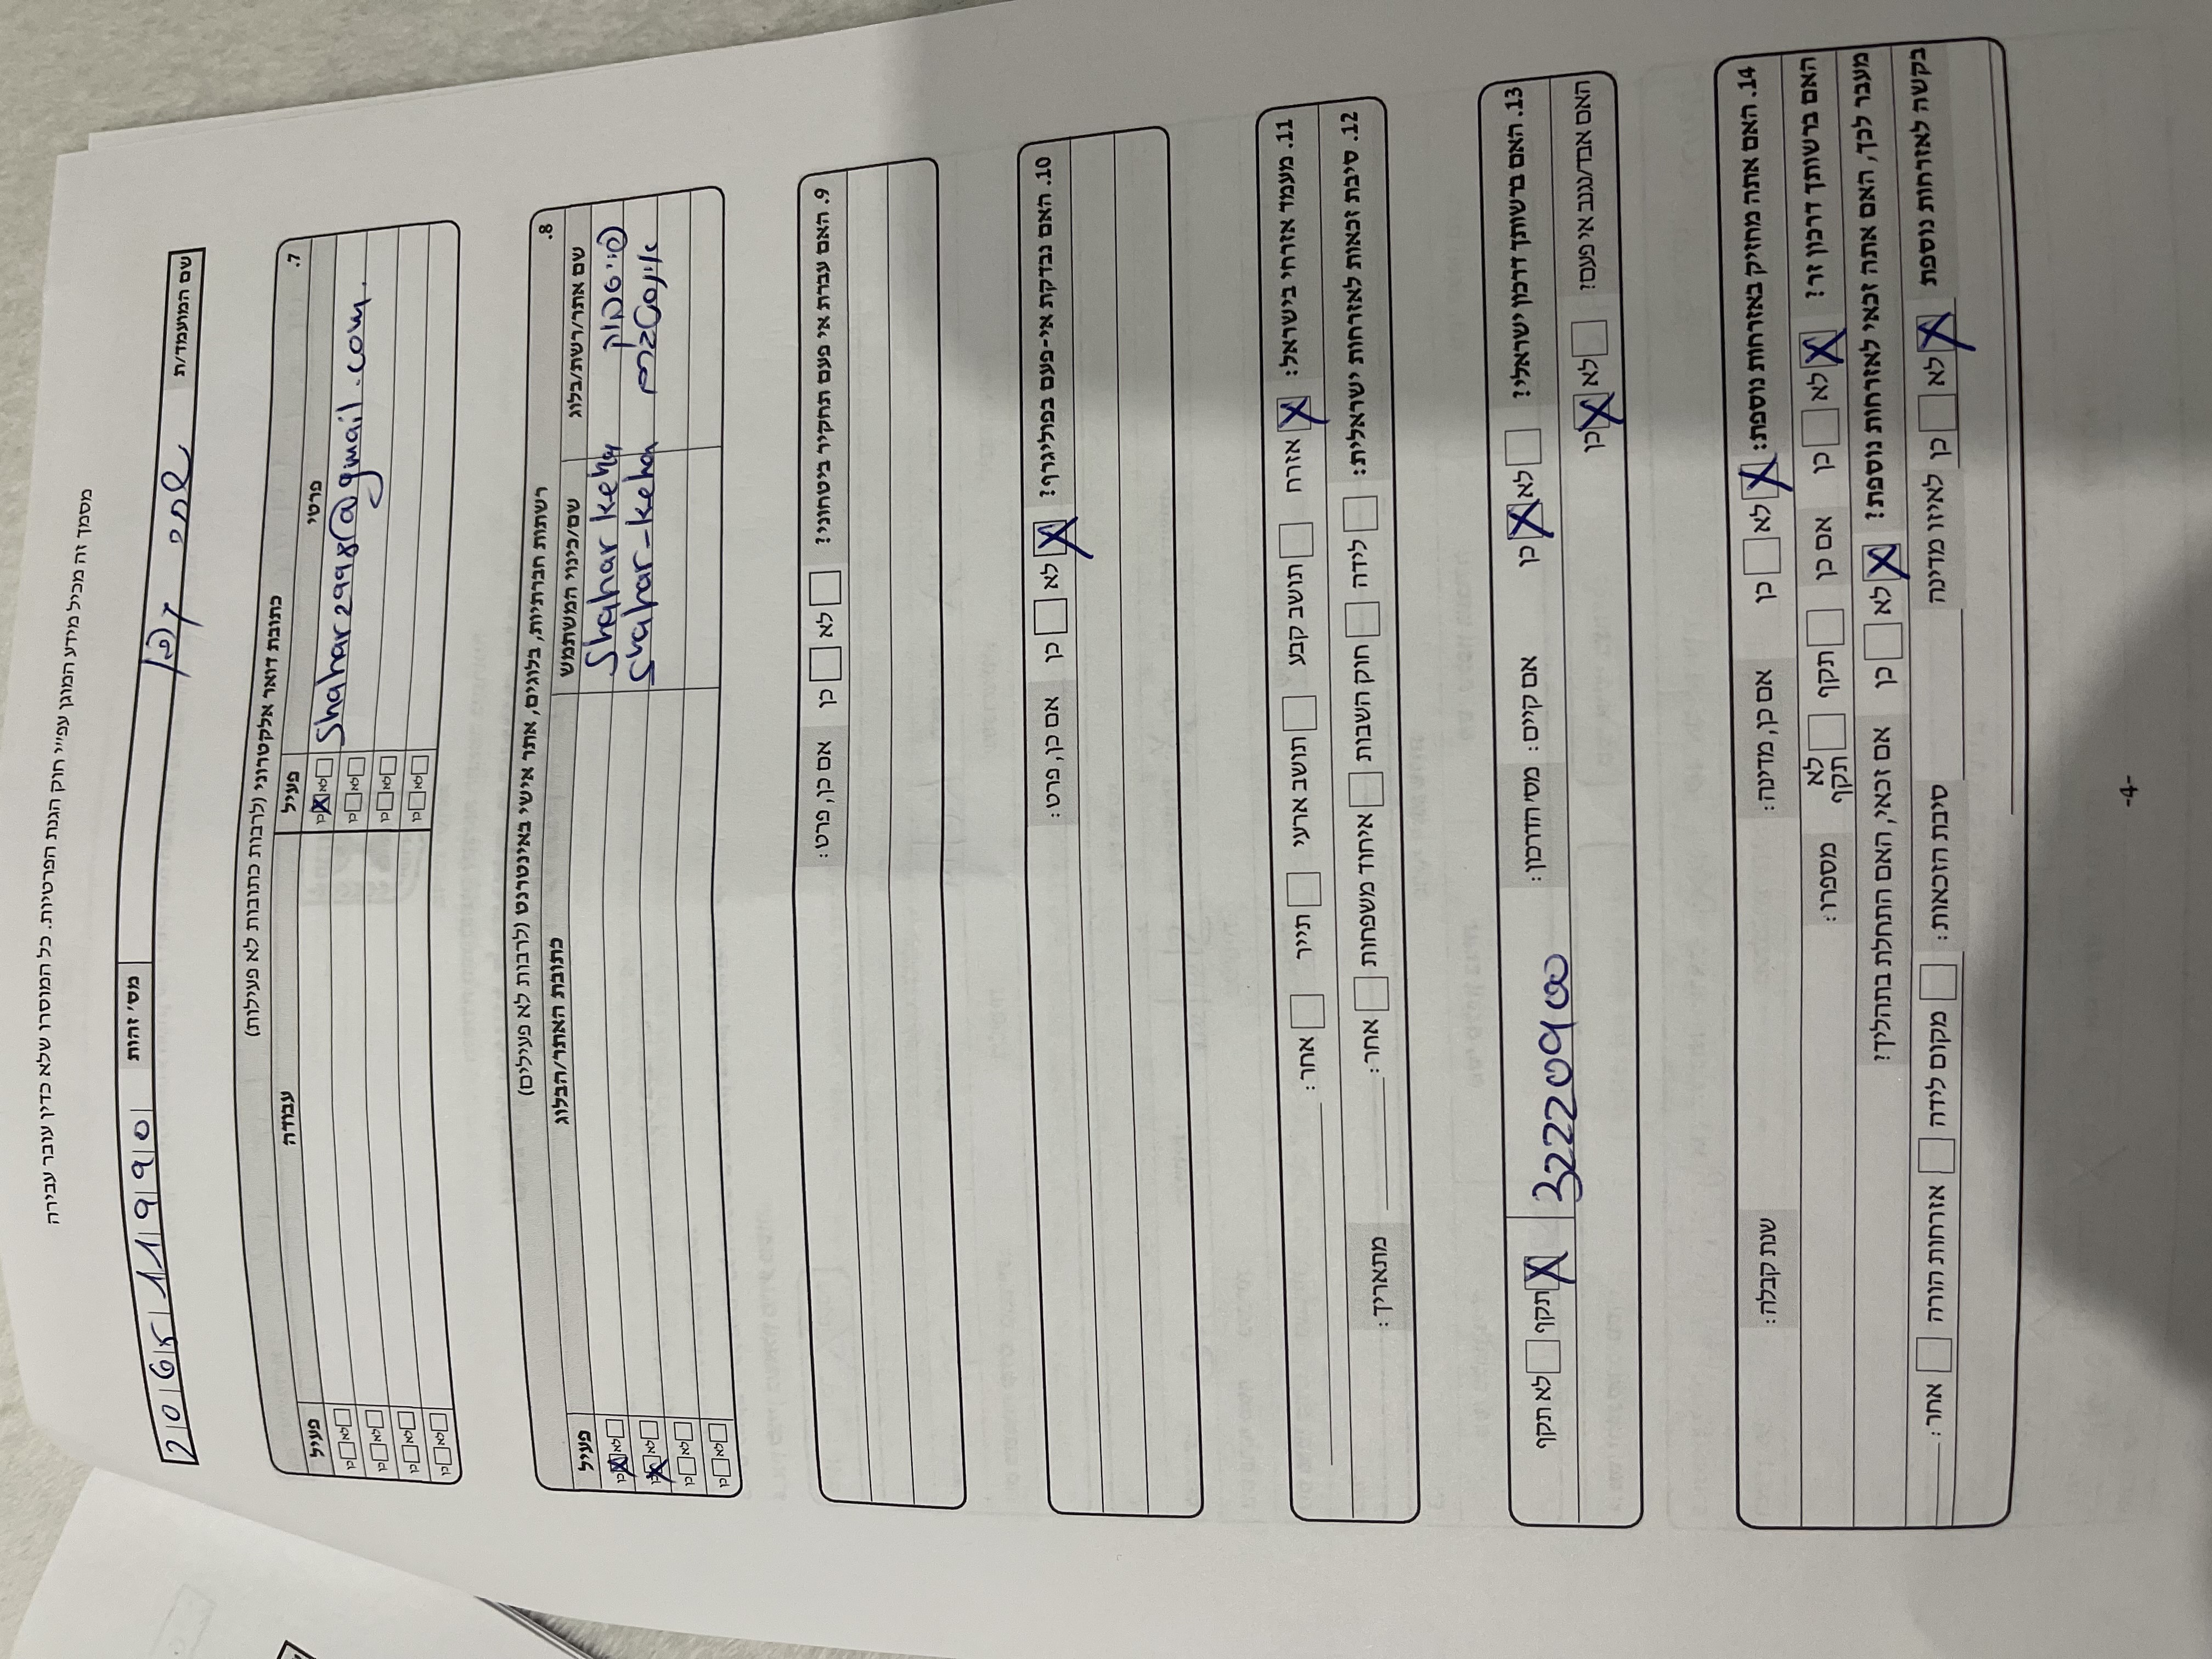 מסמך זה מכיל מידע המוגן עפ"י חוק הגנת הפרטיות. כל המוסרו שלא כדין עובר עבירה
שם המועמד/ת שחר קהן מס' זהות
7. כתובת דואר אלקטרוני (לרבות כתובות לא פעילות)
פרטי פעיל עבודה פעיל
Shahar2998@gmail.com. כן X לא כן לא
כן לא כן לא
כן לא כן לא
כן לא כן לא
8. רשתות חברתיות, בלוגים, אתר אישי באינטרנט (לרבות לא פעילים)
שם אתר/רשת/בלוג שם/כינוי המשתמש כתובת האתר/הבלוג פעיל
פייסבוק Shahar kehn כן X לא
אינסטגרם Shahar-kehn כן X לא
כן לא
כן לא
9. האם עברת אי פעם תחקיר ביטחוני? לא כן אם כן, פרט:
10. האם נבדקת אי-פעם בפוליגרף? X לא כן אם כן, פרט:
11. מעמד אזרחי בישראל: X אזרח תושב קבע תושב ארעי תייר אחר:
12. סיבת זכאות לאזרחות ישראלית: לידה חוק השבות איחוד משפחות אחר: מתאריך:
13. האם ברשותך דרכון ישראלי? לא X כן אם קיים: מס' הדרכון: 32220980 X תקף לא תקף
האם אבד/נגנב אי פעם? לא X כן
14. האם אתה מחזיק באזרחות נוספת: X לא כן אם כן, מדינה: שנת קבלה:
האם ברשותך דרכון זר? X לא כן אם כן תקף לא תקף מספרו:
מעבר לכך, האם אתה זכאי לאזרחות נוספת? X לא כן אם זכאי, האם התחלת בתהליך?
בקשה לאזרחות נוספת X לא כן לאיזו מדינה סיבת הזכאות: מקום לידה אזרחות הורה אחר:
-4-